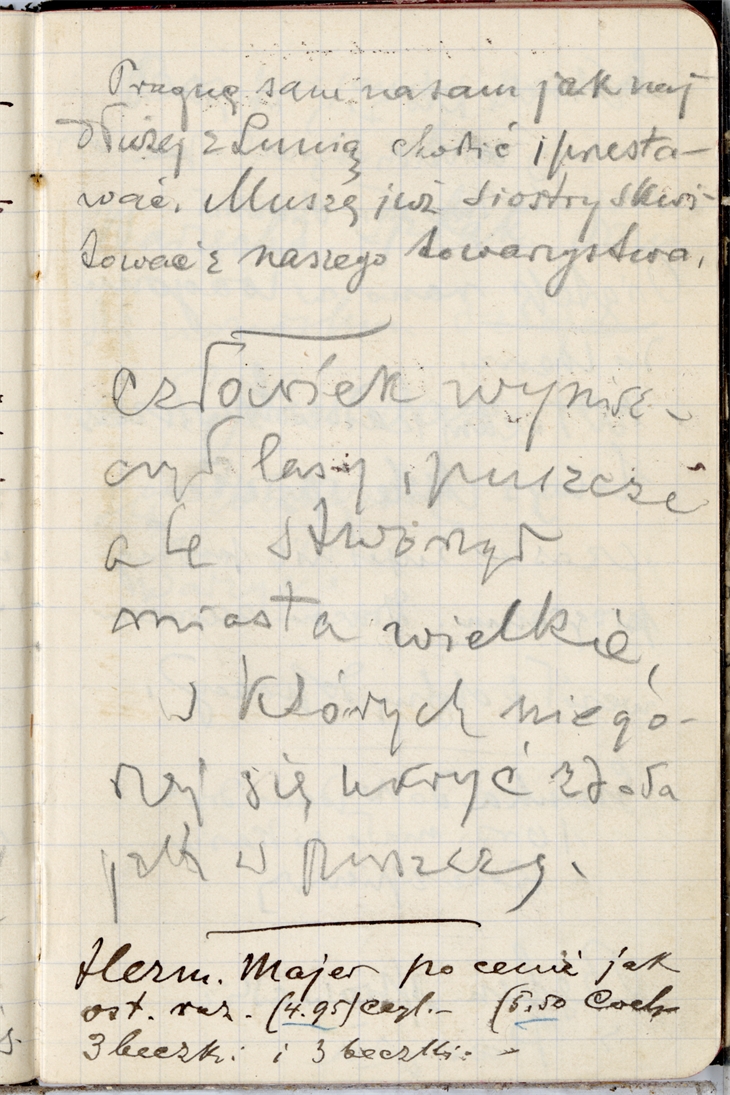 Pragnę sam na sam jak naj
dłużej z Lunią chodzić i przesta-
wać. Muszę już siostry skwi-
tować z naszego towarzystwa.
człowiek wynisz-
czył lasy i puszcze
ale stworzył
miasta wielkie,
w których niego-
rzej się ukryć zdoła
jak w puszczy.
Herm. Majer po cenie jak
ost. raz. (4.95) ceyl.- (5.50
3 beczki i 3 beczki.